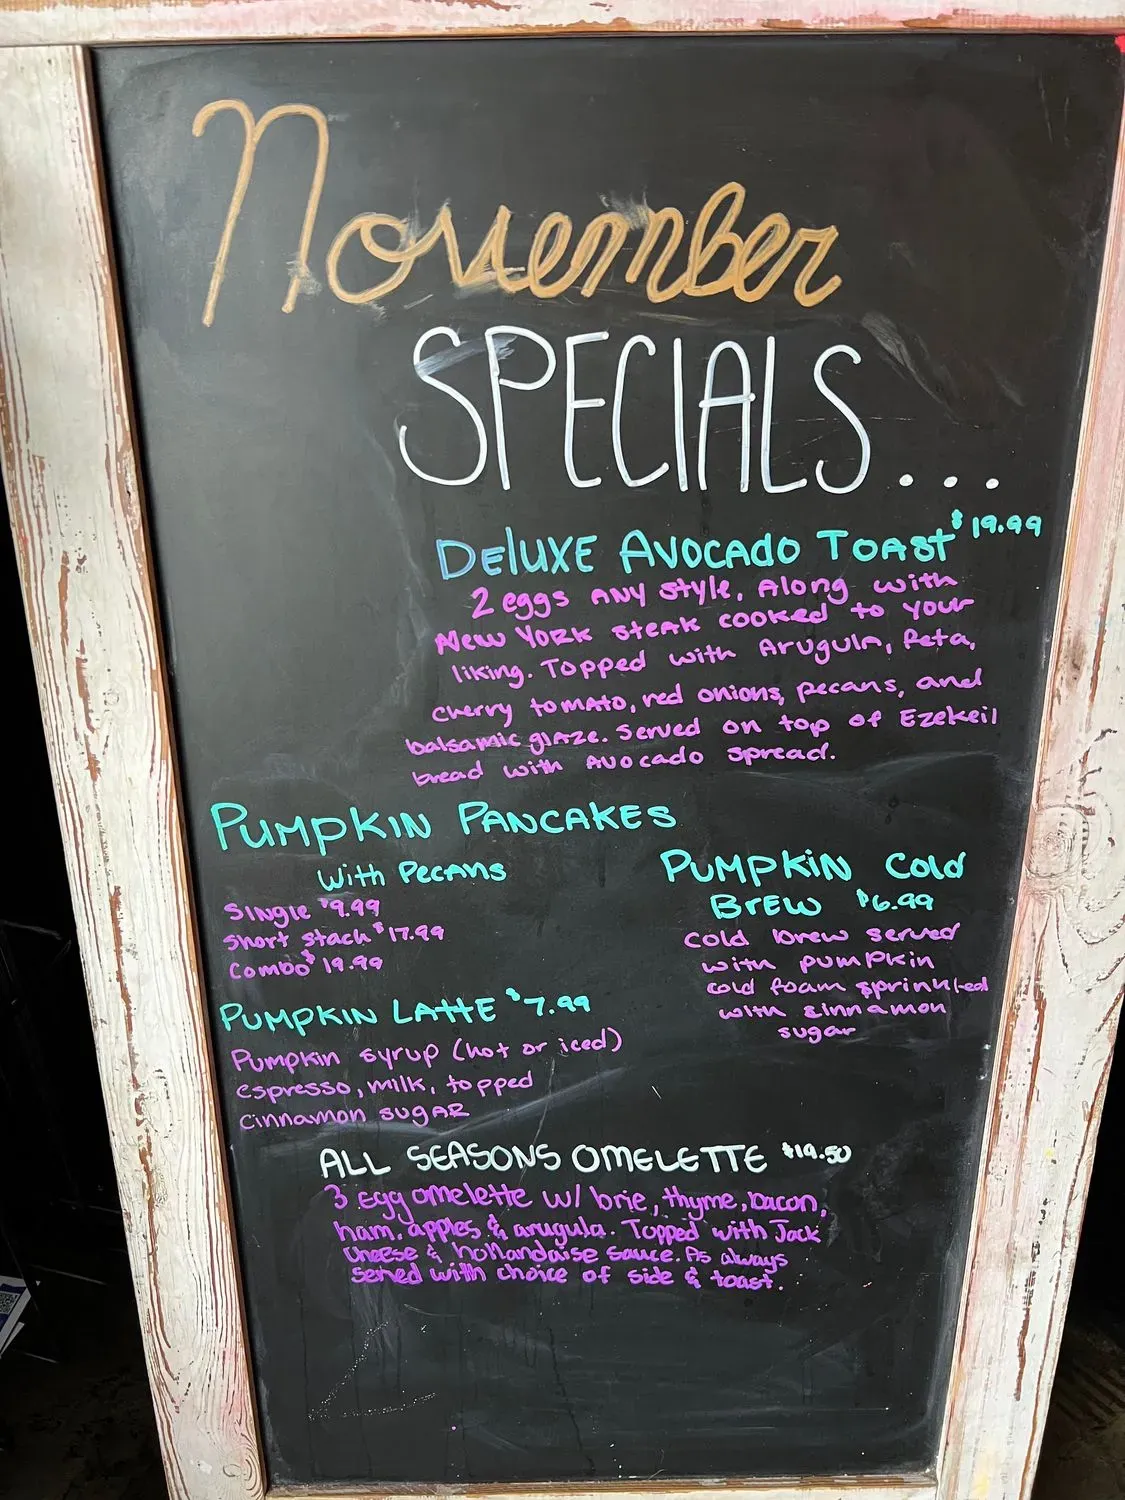 November
SPECIALS...
DELUXE AVOCADO TOAST $19.99
2 eggs ANY style, Along with
New YORK steak cooked to your
liking. Topped with Arugula, feta,
cherry tomato, red onions, pecans, and
balsamic glaze. Served on top of Ezekeil
bread with Avocado spread.
PUMPKIN PANCAKES
With Pecans
Single $9.99
Short stack $17.99
Combo $19.99
PUMPKIN Cold
BREW $6.99
Cold brew served
with pumpkin
cold foam sprinkled
with sinnamon
sugar
PUMPKIN LATTE $7.99
Pumpkin syrup (hot or iced)
espresso, milk, topped
cinnamon sugar
ALL SEASONS OMELETTE $19.50
3 Egg omelette w/ brie, thyme, bacon,
ham, apples & arugula. Topped with Jack
cheese & hollandaise sauce. As always
served with choice of side & toast.